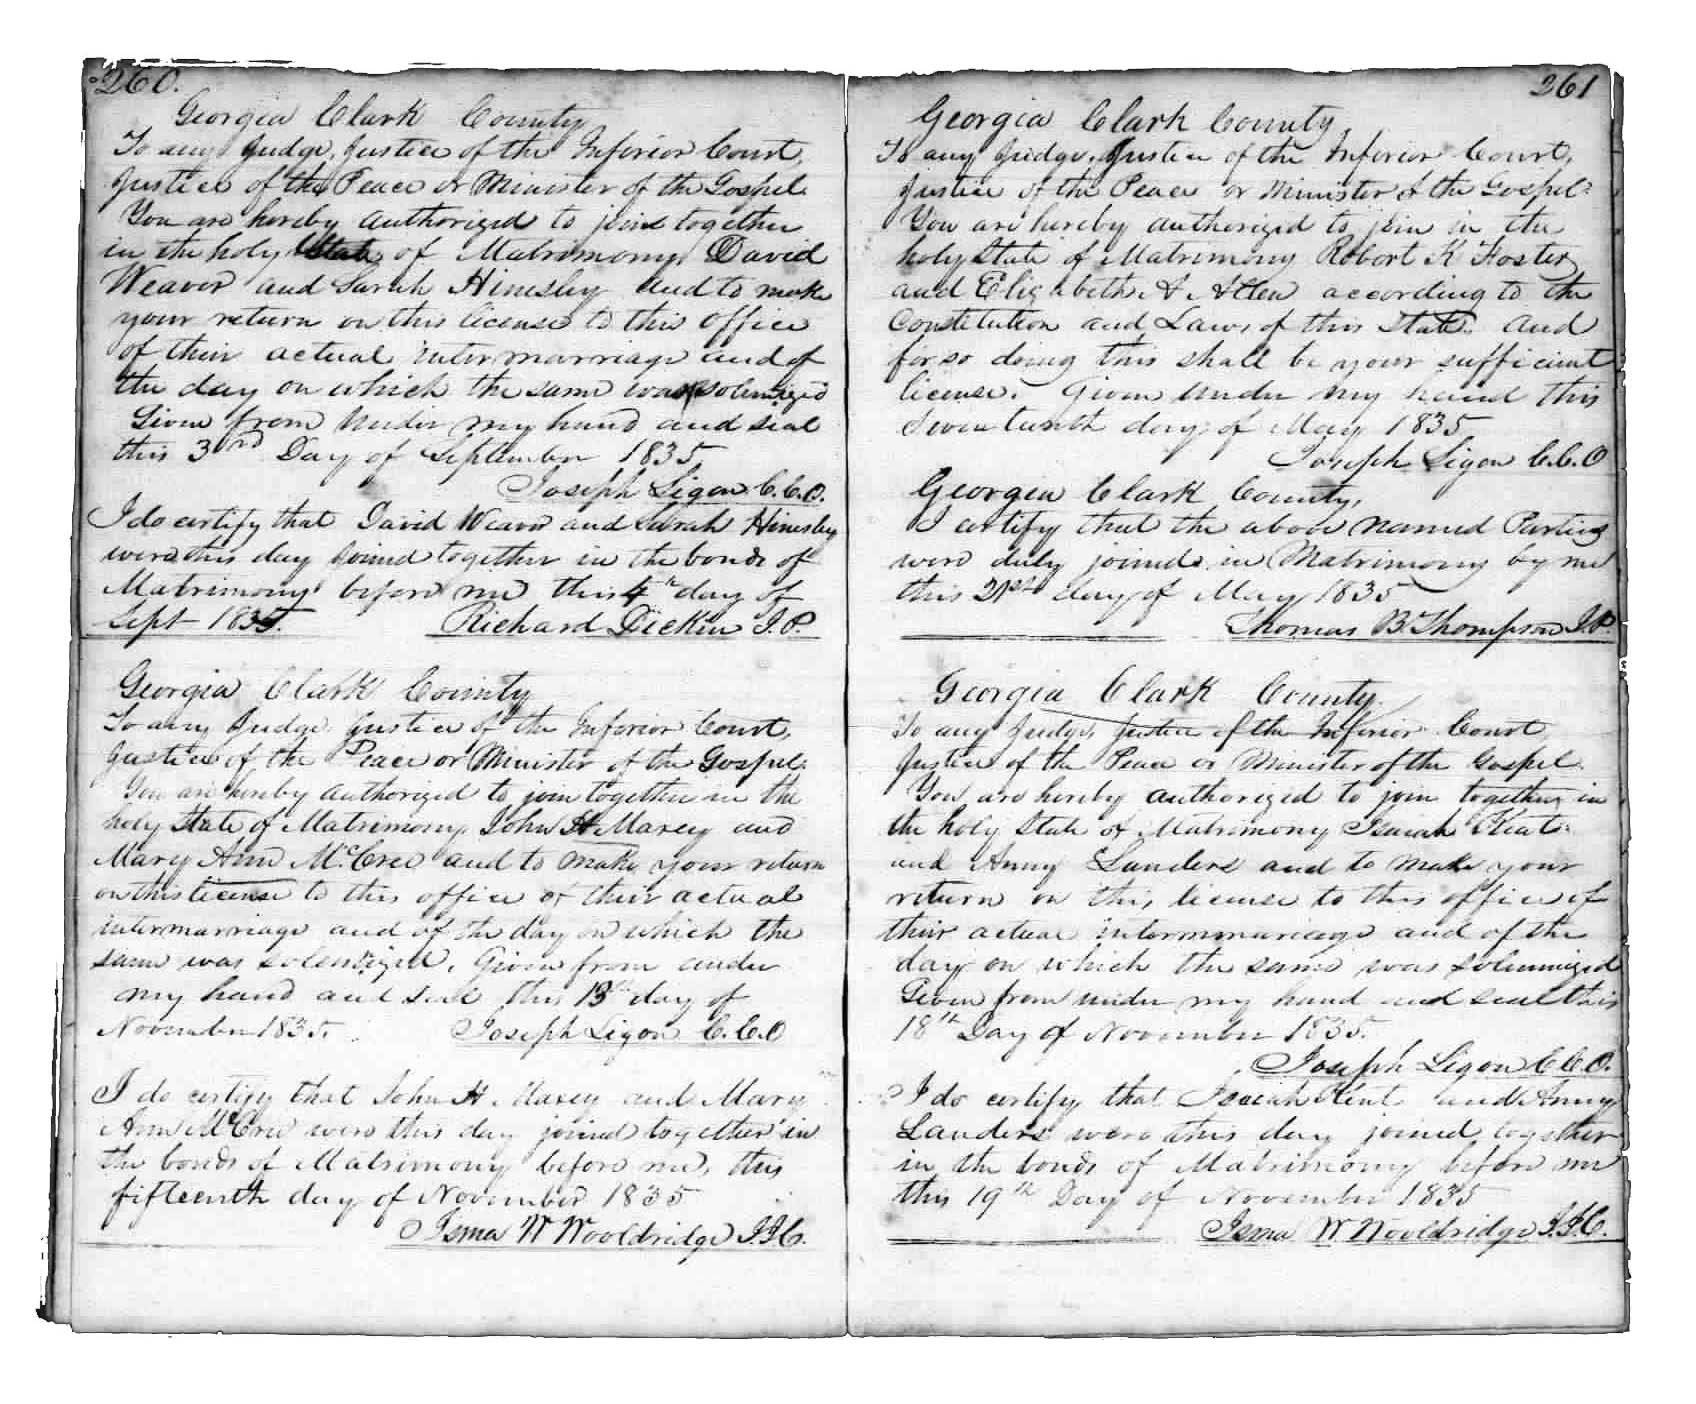 260.
Georgia Clark County
To any Judge, Justice of the Inferior Court,
Justice of the Peace or Minister of the Gospel
You are hereby authorized to joine together
in the holy State of Matrimony David
Weaver and Sarah Himsley and to make
your return on this license to this office
of their actual intermarriage and of
the day on which the same was solemnized
Given from under my hand and seal
this 3rd Day of September 1835
Joseph Ligon C.C.O.
I do certify that David Weaver and Sarah Himsley
were this day joined together in the bonds of
Matrimony before me this 4th day of
Sept 1835.
Richard Dicken J.P.
Georgia Clark County
To any Judge, Justice of the Inferior Court,
Justice of the Peace or Minister of the Gospel.
You are hereby authorized to join together in the
holy State of Matrimony John H Maxey and
Mary Ann McCree and to make your return
on this license to this office of their actual
intermarriage and of the day on which the
same was solemnized. Given from under
my hand and seal this 13th day of
November 1835.
Joseph Ligon C.C.O
I do certify that John H Maxey and Mary
Ann McCree were this day joined together in
the bonds of Matrimony before me, this
fifteenth day of November 1835
Isma W Wooldridge J.I.C.
261
Georgia Clark County,
To any Judge, Justice of the Inferior Court,
Justice of the Peace or Minister of the Gospel.
You are hereby authorized to join in the
holy State of Matrimony Robert K Foster
and Elizabeth A. Allen according to the
Constitution and Laws of this State. And
for so doing this shall be your sufficient
license. Given under my hand this
Seventeenth day of May 1835
Joseph Ligon C.C.O
Georgia Clark County,
I certify that the above named Parties
were duly joined in Matrimony by me
this 21st day of May 1835
Thomas B. Thompson J.P.
Georgia Clark County
To any Judge, Justice of the Inferior Court
Justice of the Peace or Minister of the Gospel.
You are hereby authorized to join together in
the holy State of Matrimony Isaiah
and Anny Landers and to make your
return on this license to this office of
their actual intermarriage and of the
day on which the same was solemnized
Given from under my hand and seal this
18th Day of November 1835.
Joseph Ligon C.C.O.
I do certify that Isaiah Kent and Anny
Landers were this day joined together
in the bonds of Matrimony before me
this 19th Day of November 1835
Isma W Wooldridge J.I.C.